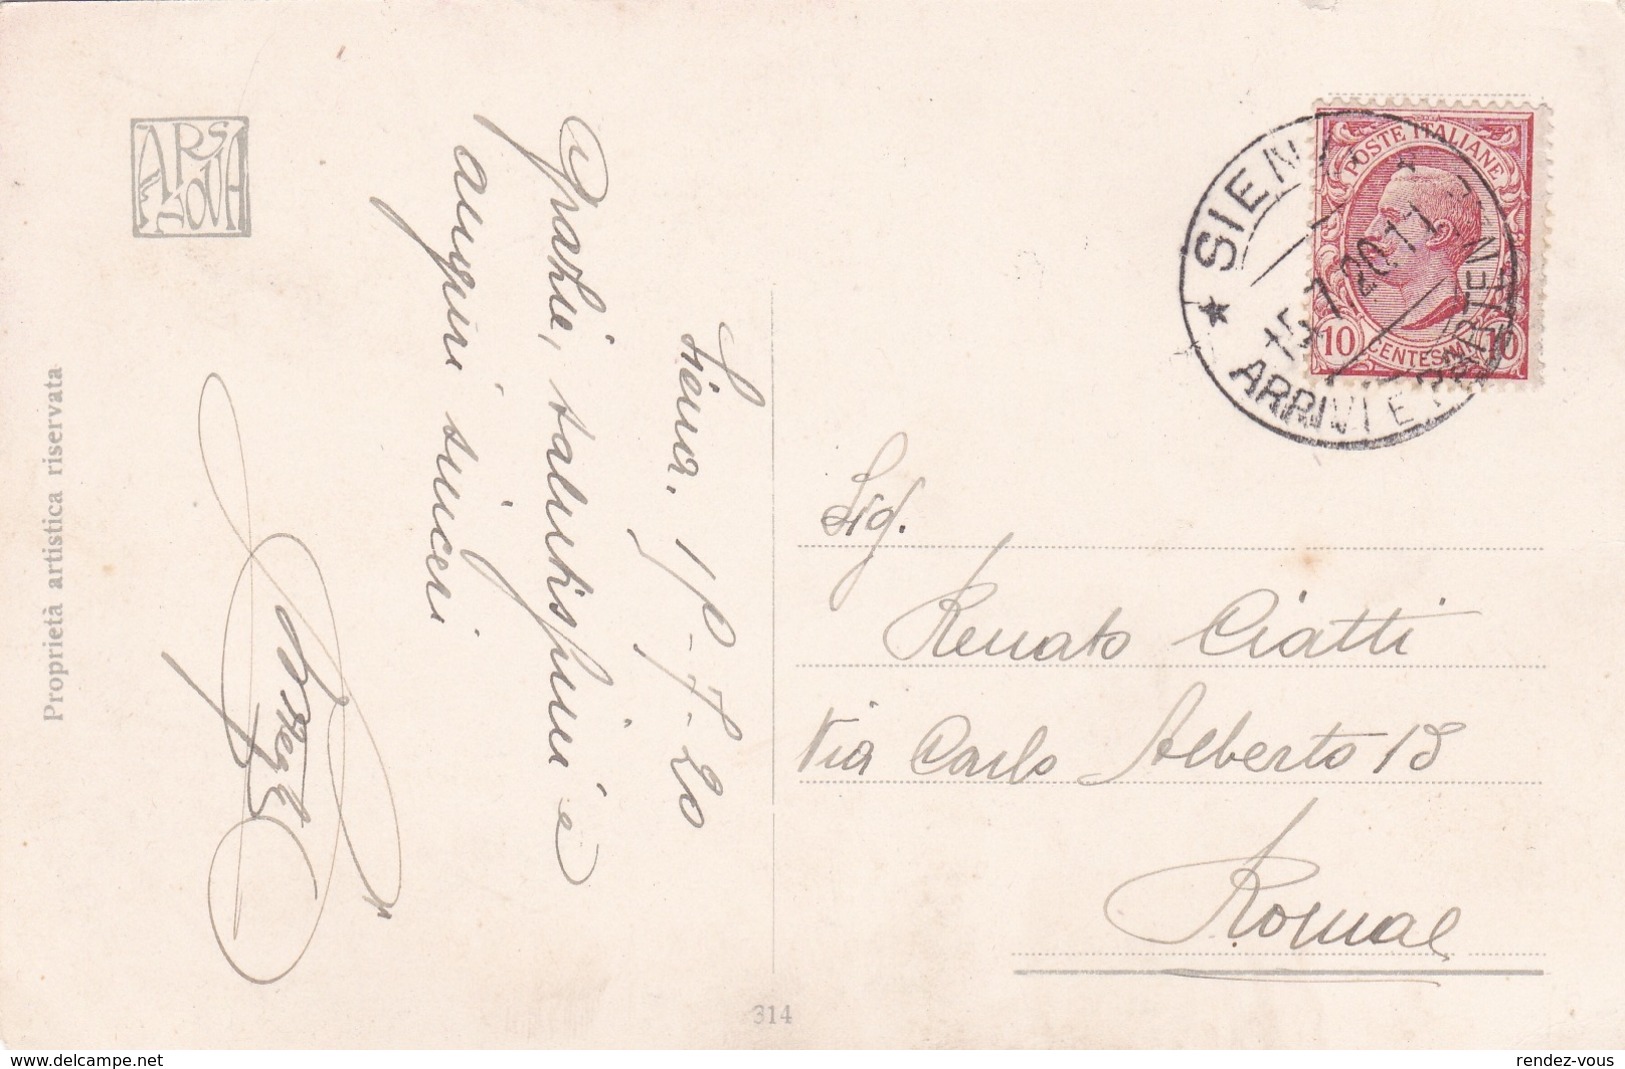 ARS NOVA
Proprietà artistica riservata
Siena. 15-7-20
Grazie, salutissimi e
auguri sinceri
POSTE ITALIANE
10 CENTESIMI 10
SIENA
15.7.20.11
ARRIVI E PARTENZE
Sig.
Renato Ciatti
Via Carlo Alberto 18
Roma
314
www.delcampe.net
rendez-vous